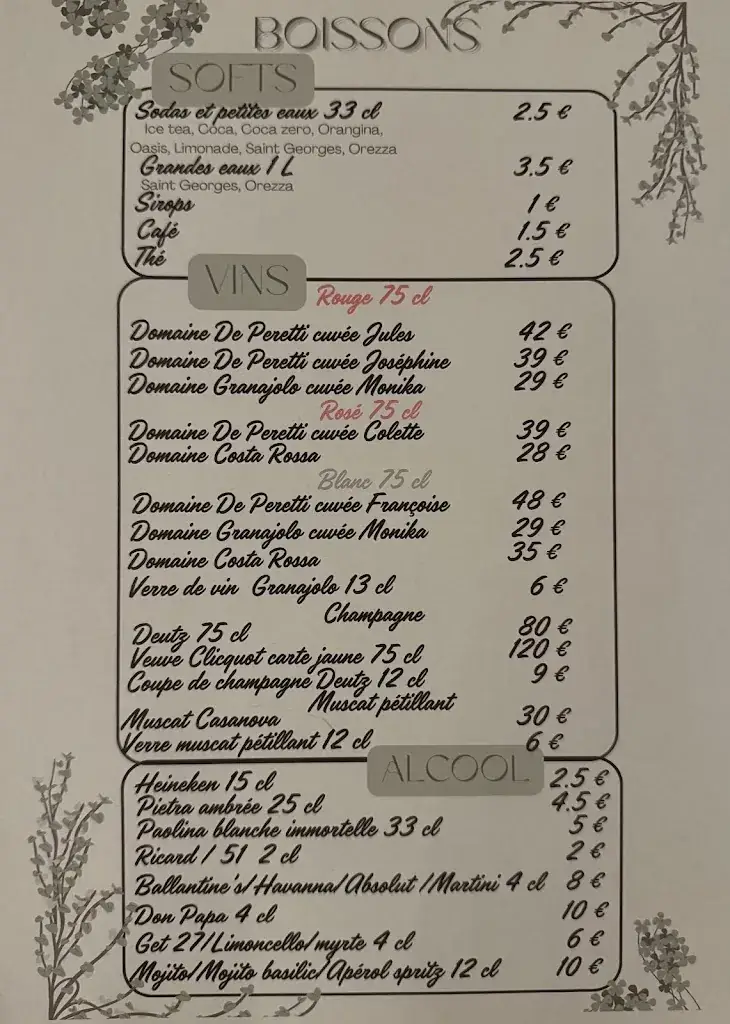 BOISSONS
SOFTS
Sodas et petites eaux 33 cl 2.5 €
Ice tea, Coca, Coca zero, Orangina,
Oasis, Limonade, Saint Georges, Orezza
Grandes eaux 1 L 3.5 €
Saint Georges, Orezza
Sirops 1 €
Café 1.5 €
Thé 2.5 €
VINS
Rouge 75 cl
Domaine De Peretti cuvée Jules 42 €
Domaine De Peretti cuvée Joséphine 39 €
Domaine Granajolo cuvée Monika 29 €
Rosé 75 cl
Domaine De Peretti cuvée Colette 39 €
Domaine Costa Rossa 28 €
Blanc 75 cl
Domaine De Peretti cuvée Françoise 48 €
Domaine Granajolo cuvée Monika 29 €
Domaine Costa Rossa 35 €
Verre de vin Granajolo 13 cl 6 €
Champagne
Deutz 75 cl 80 €
Veuve Clicquot carte jaune 75 cl 120 €
Coupe de champagne Deutz 12 cl 9 €
Muscat pétillant
Muscat Casanova 30 €
Verre muscat pétillant 12 cl 6 €
ALCOOL
Heineken 15 cl 2.5 €
Pietra ambrée 25 cl 4.5 €
Paolina blanche immortelle 33 cl 5 €
Ricard / 51 2 cl 2 €
Ballantine's/Havanna/Absolut /Martini 4 cl 8 €
Don Papa 4 cl 10 €
Get 27/Limoncello/myrte 4 cl 6 €
Mojito/Mojito basilic/Apérol spritz 12 cl 10 €